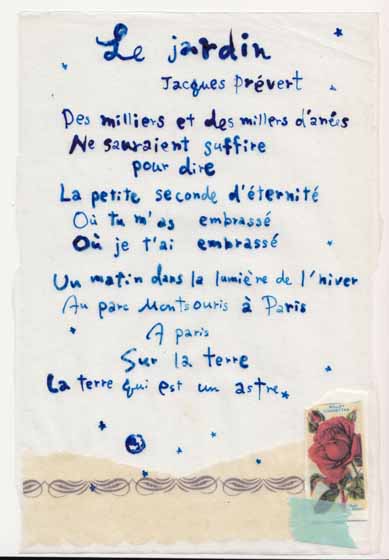 Le jardin
Jacques Prévert
Des milliers et des millers d'anées
Ne sauraient suffire
pour dire
La petite seconde d'éternité
Où tu m'as embrassé
Où je t'ai embrassé
Un matin dans la lumière de l'hiver
Au parc Montsouris à Paris
A paris
Sur la terre
La terre qui est un astre.